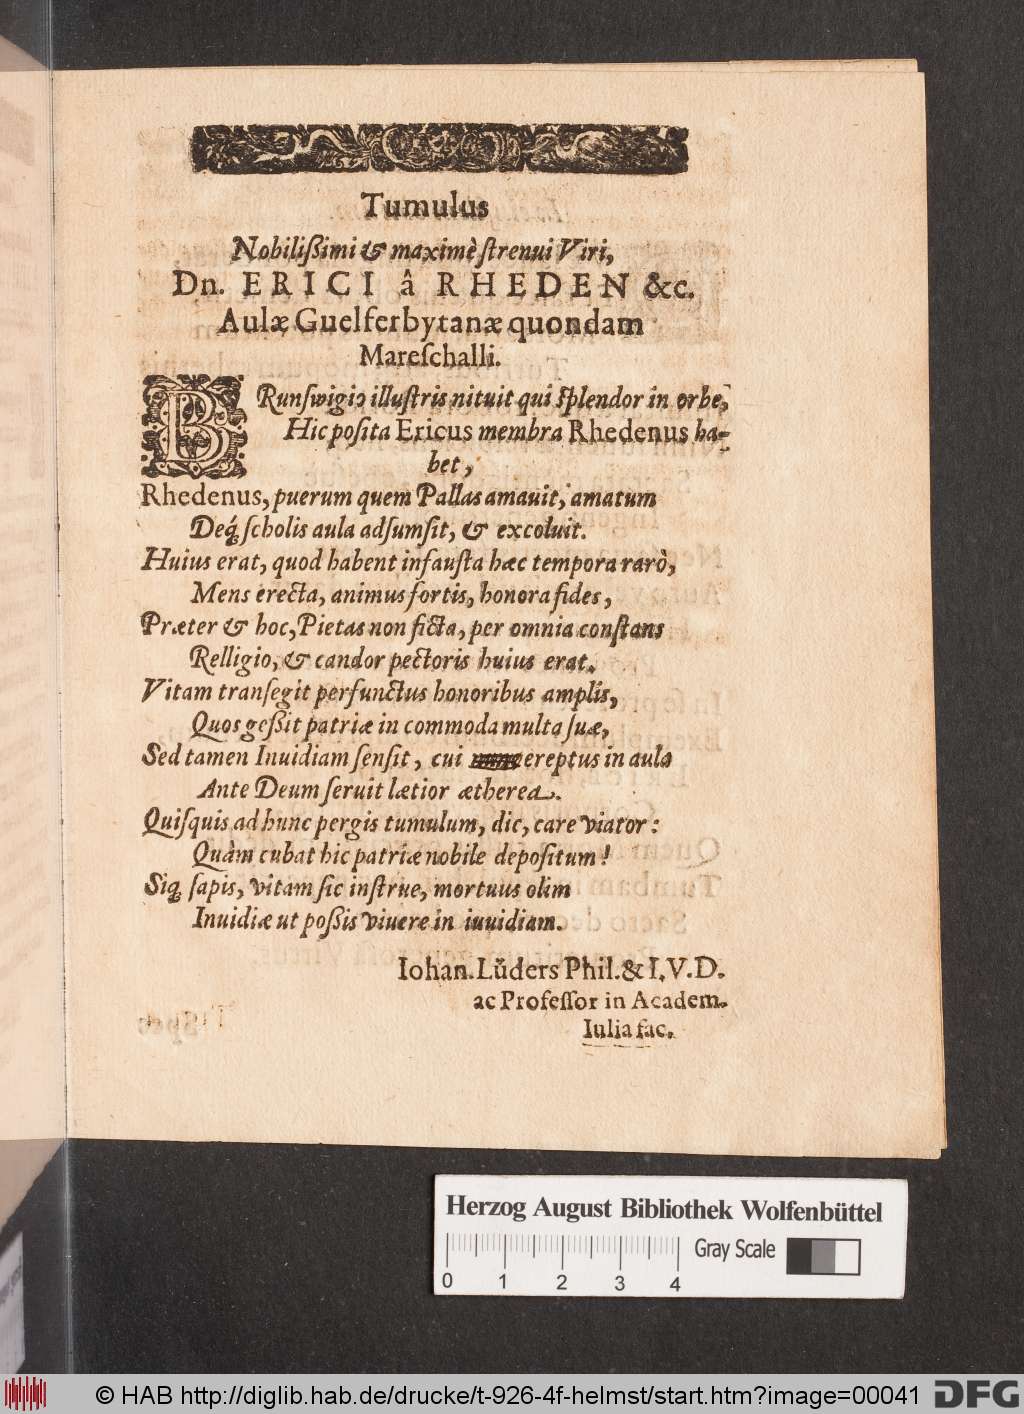 Tumulus
Nobilißimi & maximè ſtrenui Viri,
Dn. ERICI â RHEDEN &c.
Aulæ Guelferbytanæ quondam
Mareſchalli.
BRunſwigio illuſtris nituit qui ſplendor in orbe,
Hic poſita Ericus membra Rhedenus ha-
bet,
Rhedenus, puerum quem Pallas amauit, amatum
Deq́; ſcholis aula adſumſit, & excoluit.
Huius erat, quod habent infauſta hæc tempora rarò,
Mens erecta, animus fortis, honora fides,
Præter & hoc, Pietas non ficta, per omnia conſtans
Relligio, & candor pectoris huius erat.
Vitam tranſegit perfunctus honoribus amplis,
Quos geßit patriæ in commoda multa ſuæ,
Sed tamen Inuidiam ſenſit, cui ereptus in aula
Ante Deum ſeruit lætior ætherea.
Quiſquis ad hunc pergis tumulum, dic, care viator:
Quàm cubat hic patriæ nobile depoſitum!
Siq; ſapis, vitam ſic inſtrue, mortuus olim
Inuidiæ ut poßis viuere in iuuidiam.
Iohan. Lůders Phil. & I. V. D.
ac Profeſſor in Academ.
Iulia fac.
Herzog August Bibliothek Wolfenbüttel
Gray Scale
0 1 2 3 4
© HAB http://diglib.hab.de/drucke/t-926-4f-helmst/start.htm?image=00041
DFG